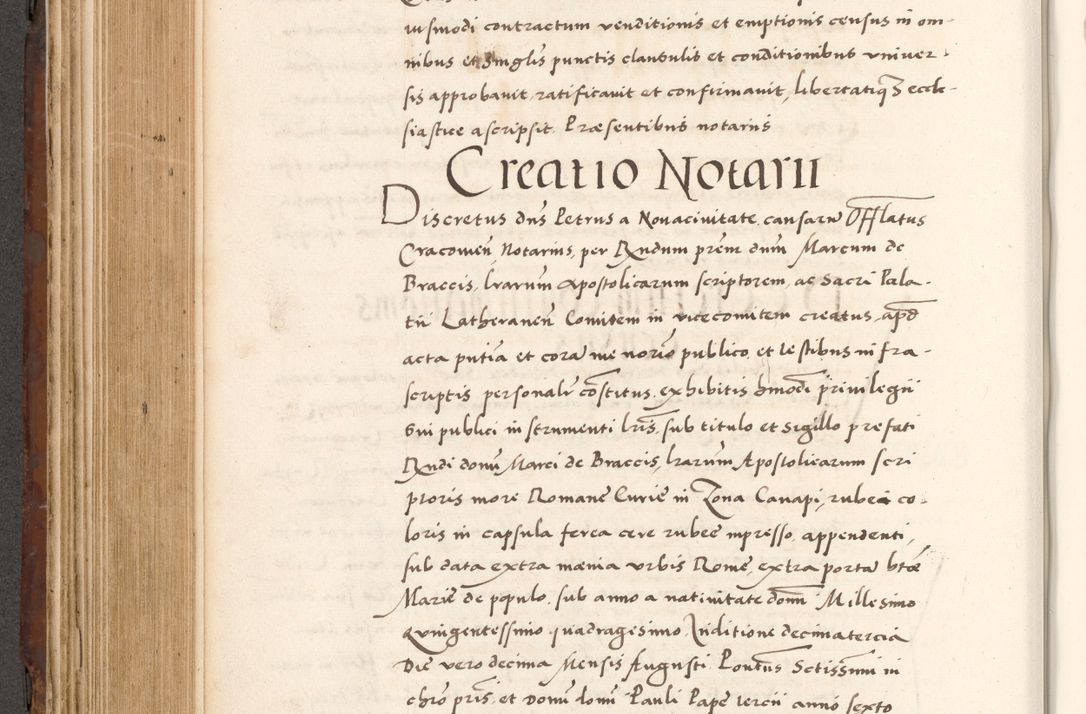 iusmodi contractum venditionis et emptionis census in om-
nibus et singlis punctis clausulis et conditionibus univer-
sis approbavit, ratificavit et confirmavit, libertatiq3 eccle-
siastice ascripsit. Præsentibus notarius
Creatio Notarii
Discretus dns Petrus a Novacivitate, causarū Offlatus
Cracovieñ Notarius, per Rndum prem dnm Marcum de
Braccis, lrarum Apostolicarum scriptorem, ac Sacri Pala-
tii Latheraneñ Comitem in vicecomitem creatus, apd
acta pntia et cora me norio publico, et testibus infra-
scriptis personalr costitus, exhibitis hmodi privilegii
sui publici instrumenti lris, sub titulo et sigillo prefati
Rndi domi Marci de Braccis, lrarum Apostolicarum scri
ptoris more Romane Curie in Zona Canapi, rubei co-
loris in capsula ferea cere rubee impresso, appendenti,
sub data extra mænia urbis Rome, extra porta btæ
Marie de populo, sub anno a nativitate domi Millesimo
quingentessimo quadragesimo, Inditione decimatercia
Die vero decima Mensis Augusti Pontus Sctissimi in
chro pris, et domi domi Pauli Pape tercii anno sexto